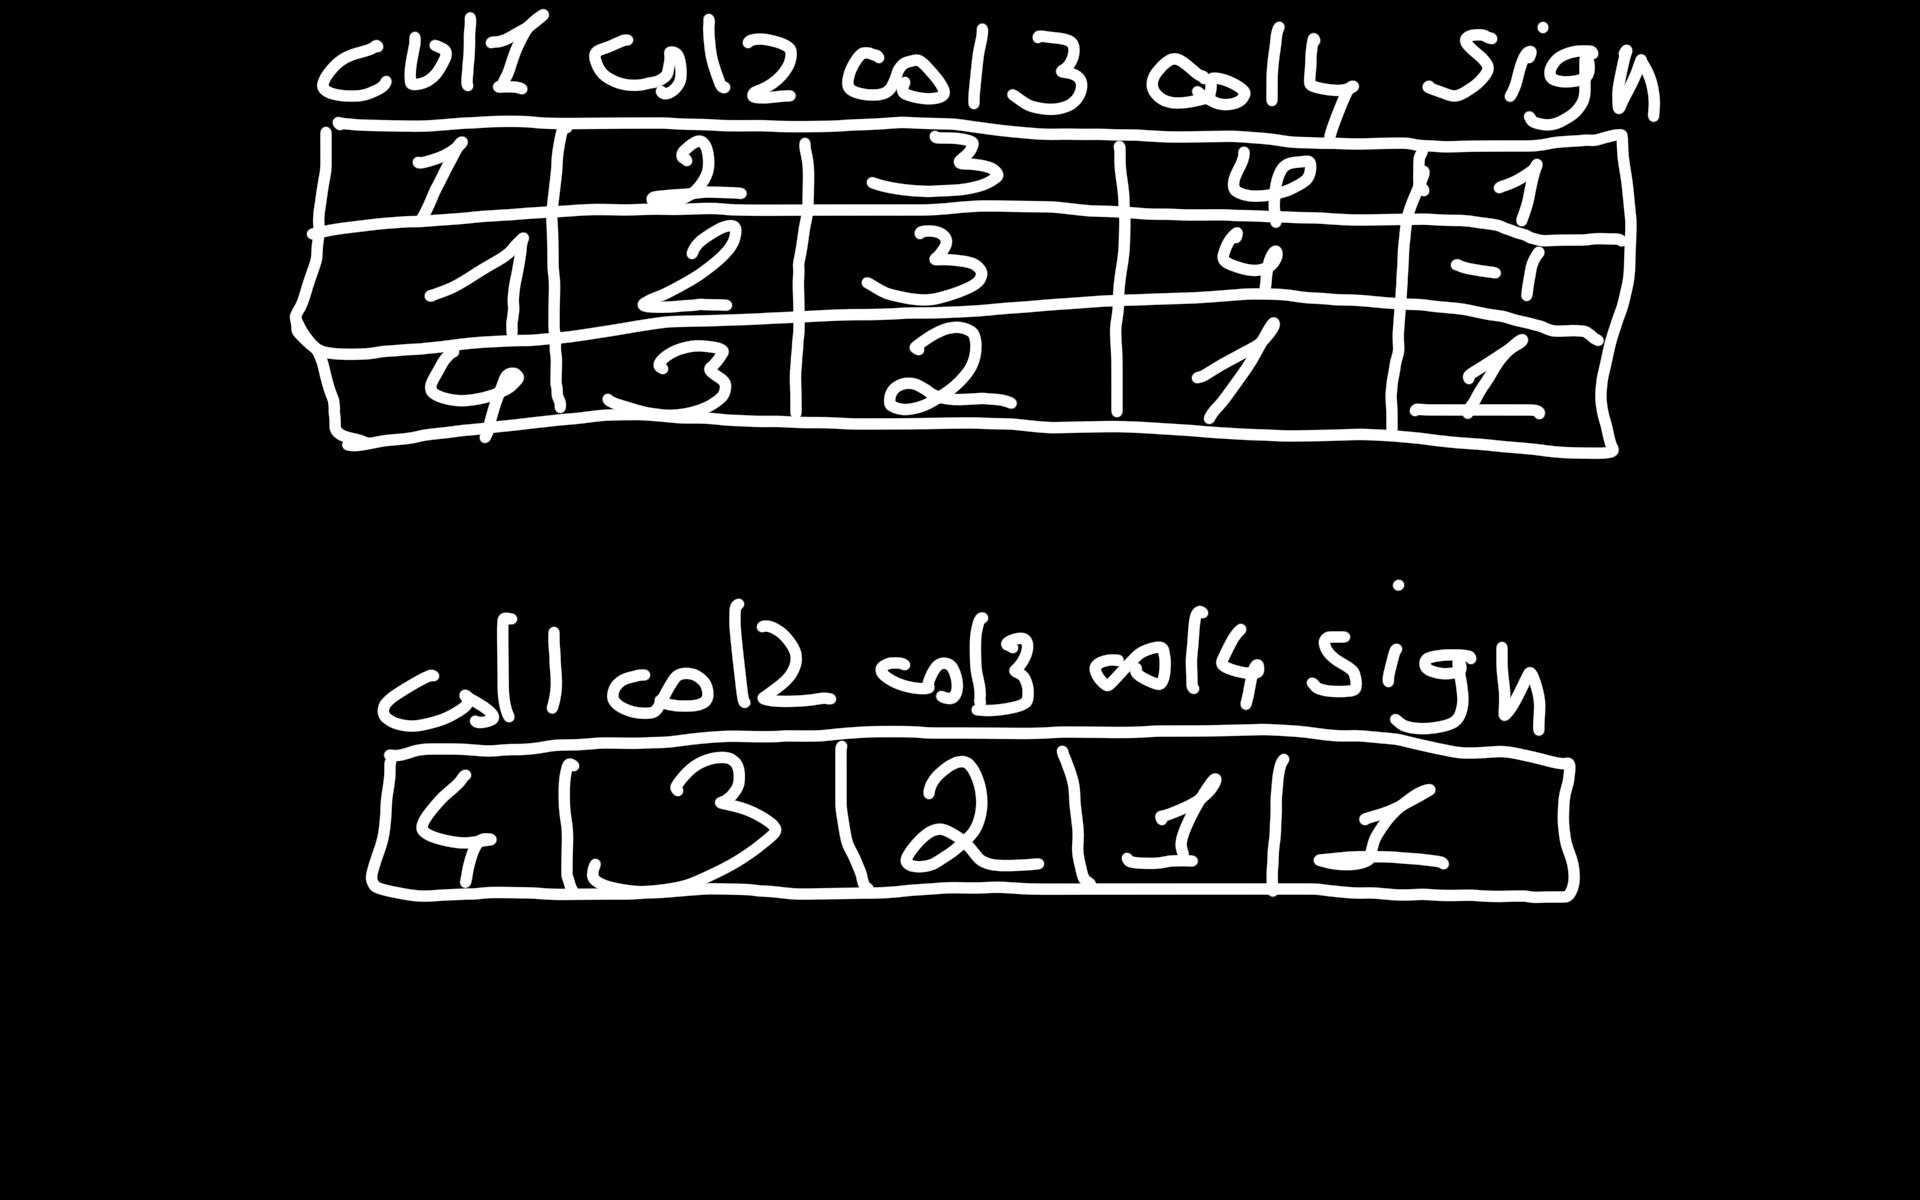 col1 col2 col3 col4 sign
1 2 3 4 1
1 2 3 4 -1
4 3 2 1 1
col1 col2 col3 col4 sign
4 3 2 1 1